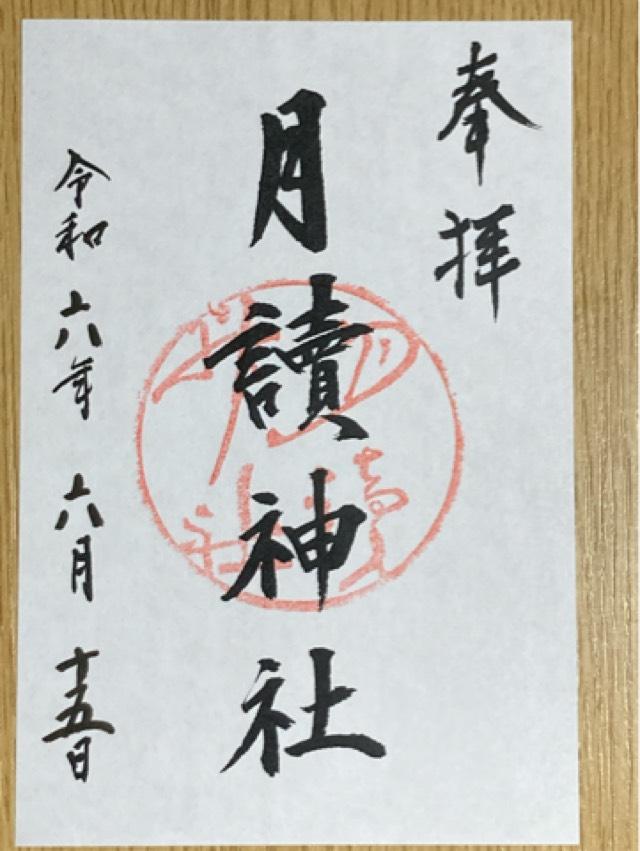 奉拝
月讀神社
令和六年 六月 十五日